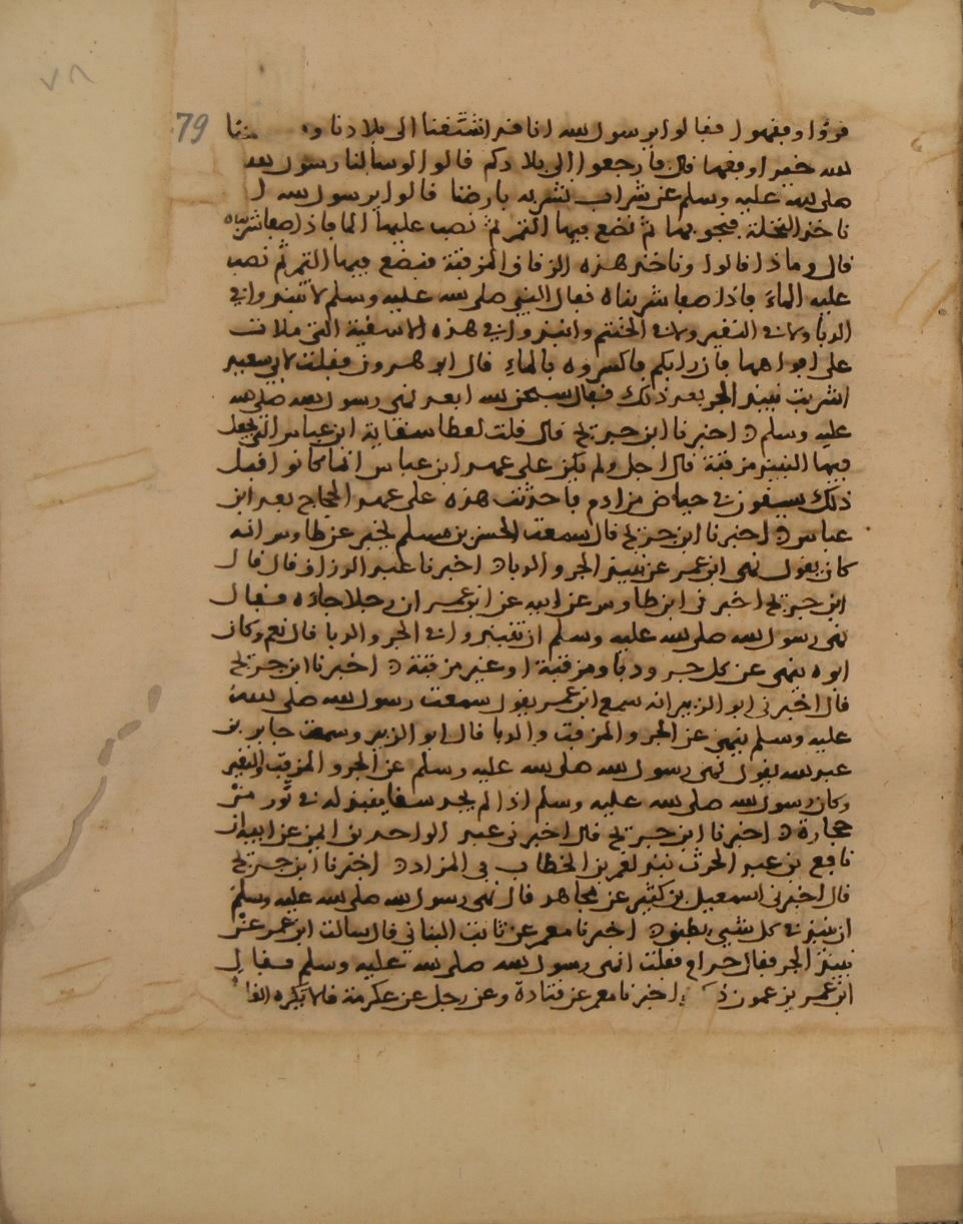 79
٧٨
قرؤا وفقهوا فقالوا يرسول الله انا قد اشتقنا الى بلادنا و
الله خيرا وفقها قال فارجعوا الى بلادكم قالوا لو سالنا رسول الله
صلى الله عليه وسلم عن شراب نشربه بارضنا قالوا يرسول الله ا
ناخذ النخلة فنجوبها ثم نضع فيها التمر ثم نصب عليها الما فاذا صفا شربناه
قال وماذا قالوا وناخذ هذه الزقاق المزفتة فنضع فيها التمر ثم نصب
عليه الماء فاذا صفا شربناه فقال النبي صلى الله عليه وسلم لا تنبذوا في
الدبا ولا في النقير ولا في الحنتم وانبذوا في هذه الاسقية التي ملاث
على افواهها فان رابكم فاكسروه بالماء قال ابو هرون فقلت لابي سعيد
اشربت نبيذ الجر بعد ذلك فقال سبحن الله ابعد نهي رسول الله صلى الله
عليه وسلم اخبرنا ابن جريج قال قلت لعطا سقاية ابن عباس التي يجعل
فيها النبيذ مزفتة قال اجل ولم تكن على عهد ابن عباس انما كانوا قبل
ذلك يسقون في حياض من ادم فاحدثت هذه على عهد الحجاج بعد ابن
عباس اخبرنا ابن جريج قال سمعت الحسن بن مسلم يخبر عن طاوس انه
كان يقول نهى ابن عمر عن نبيذ الجر والدبا اخبرنا عبد الرزاق قال قال
ابن جريج اخبرني ابن طاوس عن ابيه عن ابن عمر ان رجلا جاءه فقال
نهى رسول الله صلى الله عليه وسلم ان تنبذوا في الجر والدبا قال نعم وكان
ابوه ينهى عن كل جر ودبا ومزفتة او غير مزفتة اخبرنا ابن جريج
قال اخبرني ابو الزبير انه سمع ابن عمر يقول سمعت رسول الله صلى الله
عليه وسلم ينهى عن الجر والمزفت والدبا قال ابو الزبير وسمعت جابر بن
عبد الله يقول نهى رسول الله صلى الله عليه وسلم عن الجر والمزفت والنقير
وكان رسول الله صلى الله عليه وسلم اذا لم يجد سقا ينبذ له في تور من
حجارة اخبرنا ابن جريج قال اخبرني عبد الواحد بن ايمن عن ابيه ان
نافع بن عبد الحرث نبذ لعمر بن الخطاب في المزاد اخبرنا ابن جريج
قال اخبرني اسمعيل بن كثير عن مجاهد قال نهى رسول الله صلى الله عليه وسلم
ان ينبذ في كل شيي يطبق اخبرنا معمر عن ثابت البناني قال سالت ابن عمر عن
نبيذ الجر فقال حرام فقلت انهى رسول الله صلى الله عليه وسلم فقال
ابن عمر يزعمون ذ اخبرنا معمر عن قتادة وعن رجل عن عكرمة قالا يكره